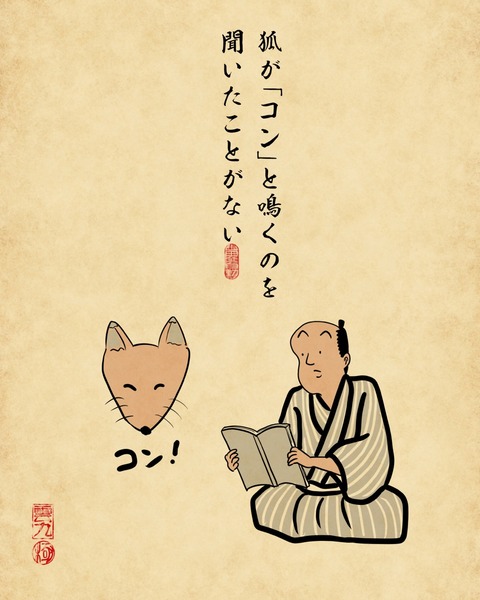 狐が「コン」と鳴くのを
聞いたことがない
コン！